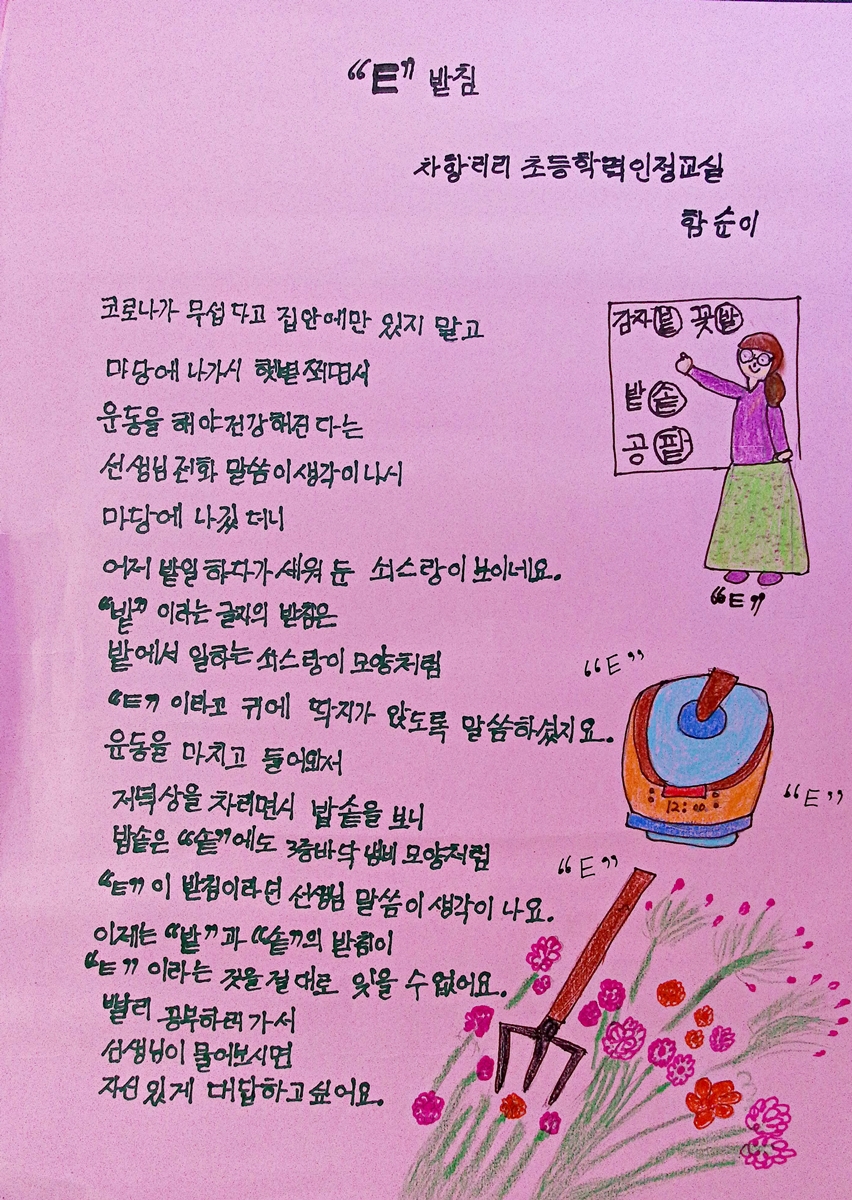 “ㅌ” 받침
차황리리 초등학력인정교실
함순이
코로나가 무섭다고 집안에만 있지 말고
마당에 나가서 햇볕 쬐면서
운동을 해야 건강해진다는
선생님 전화 말씀이 생각이 나서
마당에 나갔더니
어제 밭일 하다가 세워 둔 쇠스랑이 보이네요.
“밭” 이라는 글자의 받침은
밭에서 일하는 쇠스랑이 모양처럼
“ㅌ” 이라고 귀에 딱지가 앉도록 말씀하셨지요.
운동을 마치고 들어와서
저녁상을 차리면서 밥솥을 보니
밥솥은 “솥”에도 3층바닥 냄비 모양처럼
“ㅌ”이 받침이라던 선생님 말씀이 생각이 나요.
이제는 “밭”과 “솥”의 받침이
“ㅌ” 이라는 것을 절대로 잊을 수 없어요.
빨리 공부하러 가서
선생님이 물어보시면
자신 있게 대답하고 싶어요.
감자밭 꽃밭
밭솥
공팥
“ㅌ”
“ㅌ”
12:00
“ㅌ”
“ㅌ”